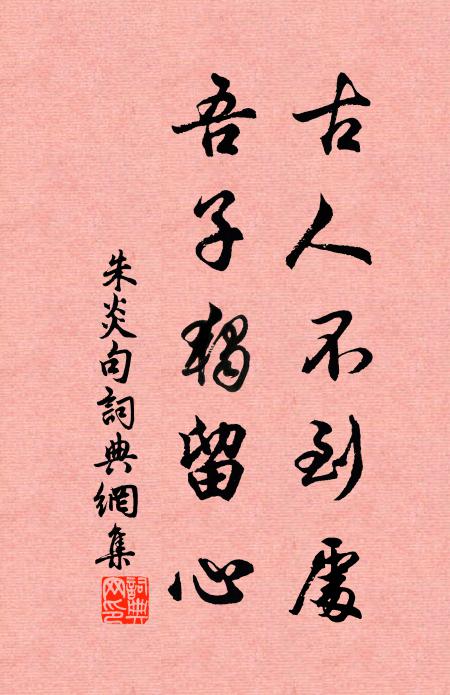 古人不到處
吾子獨留心
朱炎句詞典網集
詞典網印